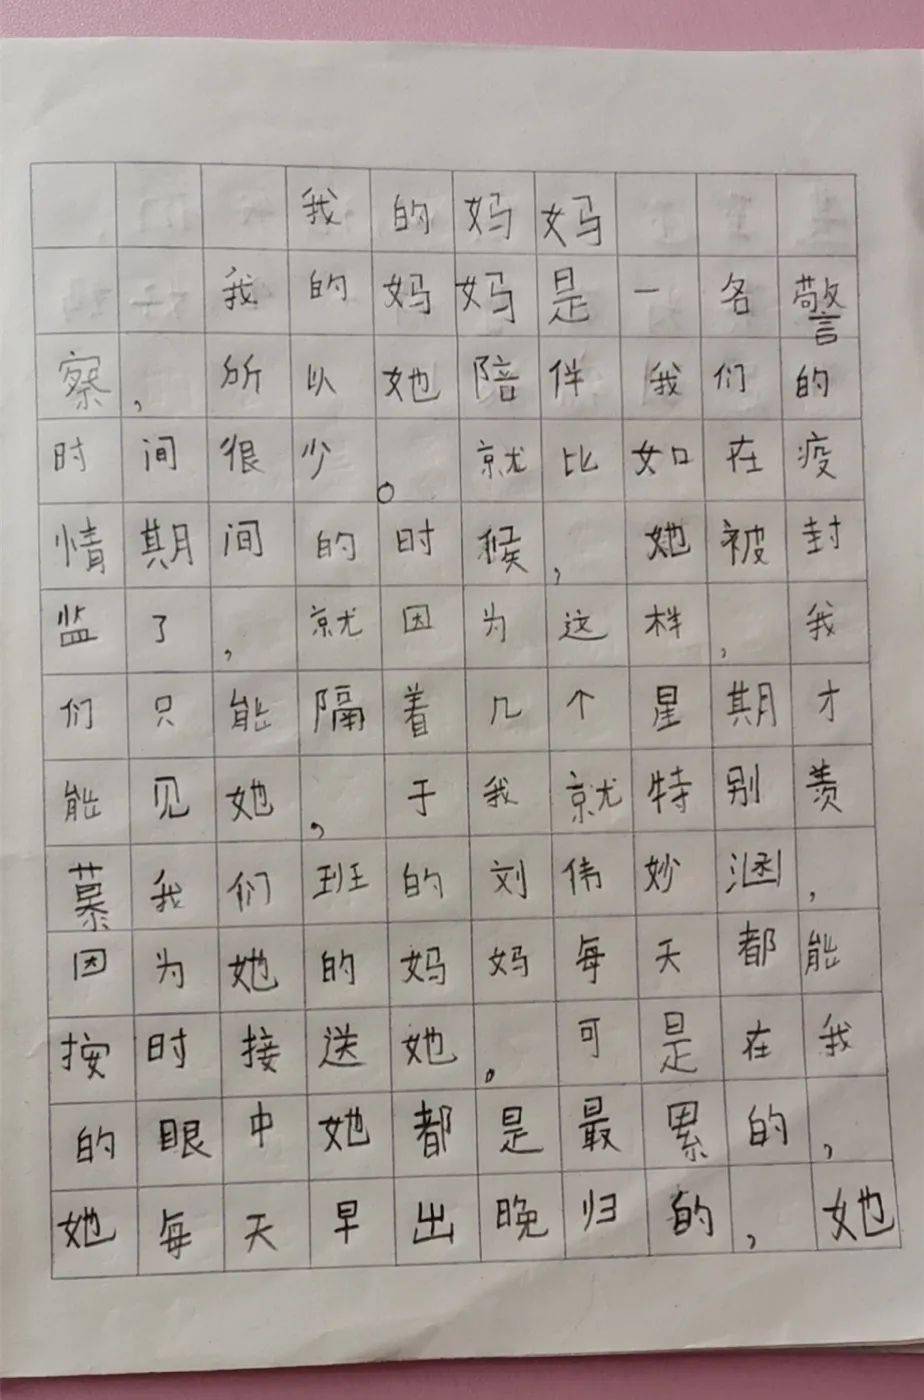 我的妈妈
我的妈妈是一名警
察,所以她陪伴我们的
时间很少。就比如在疫
情期间的时候,她被封
监了,就因为这样,我
们只能隔着几个星期才
能见她,于我就特别羡
慕我们班的刘伟妙涵,
因为她的妈妈每天都能
按时接送她。可是在我
的眼中她都是最累的,
她每天早出晚归的,她